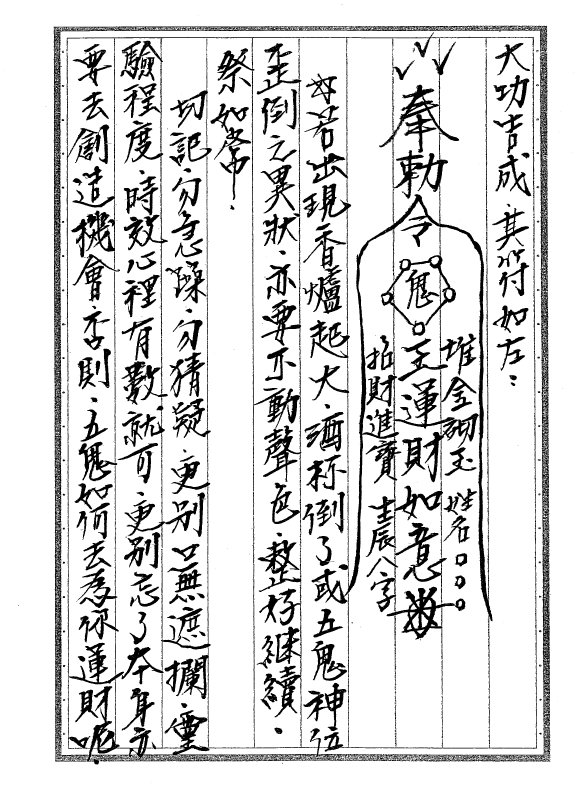 大功吉成、其符如左：
堆金砌玉 姓名○○○
奉勅令 鬼 王運財如意
招財進寶 生辰八字
若出現香爐起火、酒杯倒了或五鬼神位
歪倒之異狀、亦要不動聲色、整好継續、
祭如常！
切記、勿急躁、勿猜疑、更别口無遮攔、靈
驗程度、時效心裡有數就可、更别忘了本身亦
要去創造機會、否則、五鬼如何去為你運財呢、